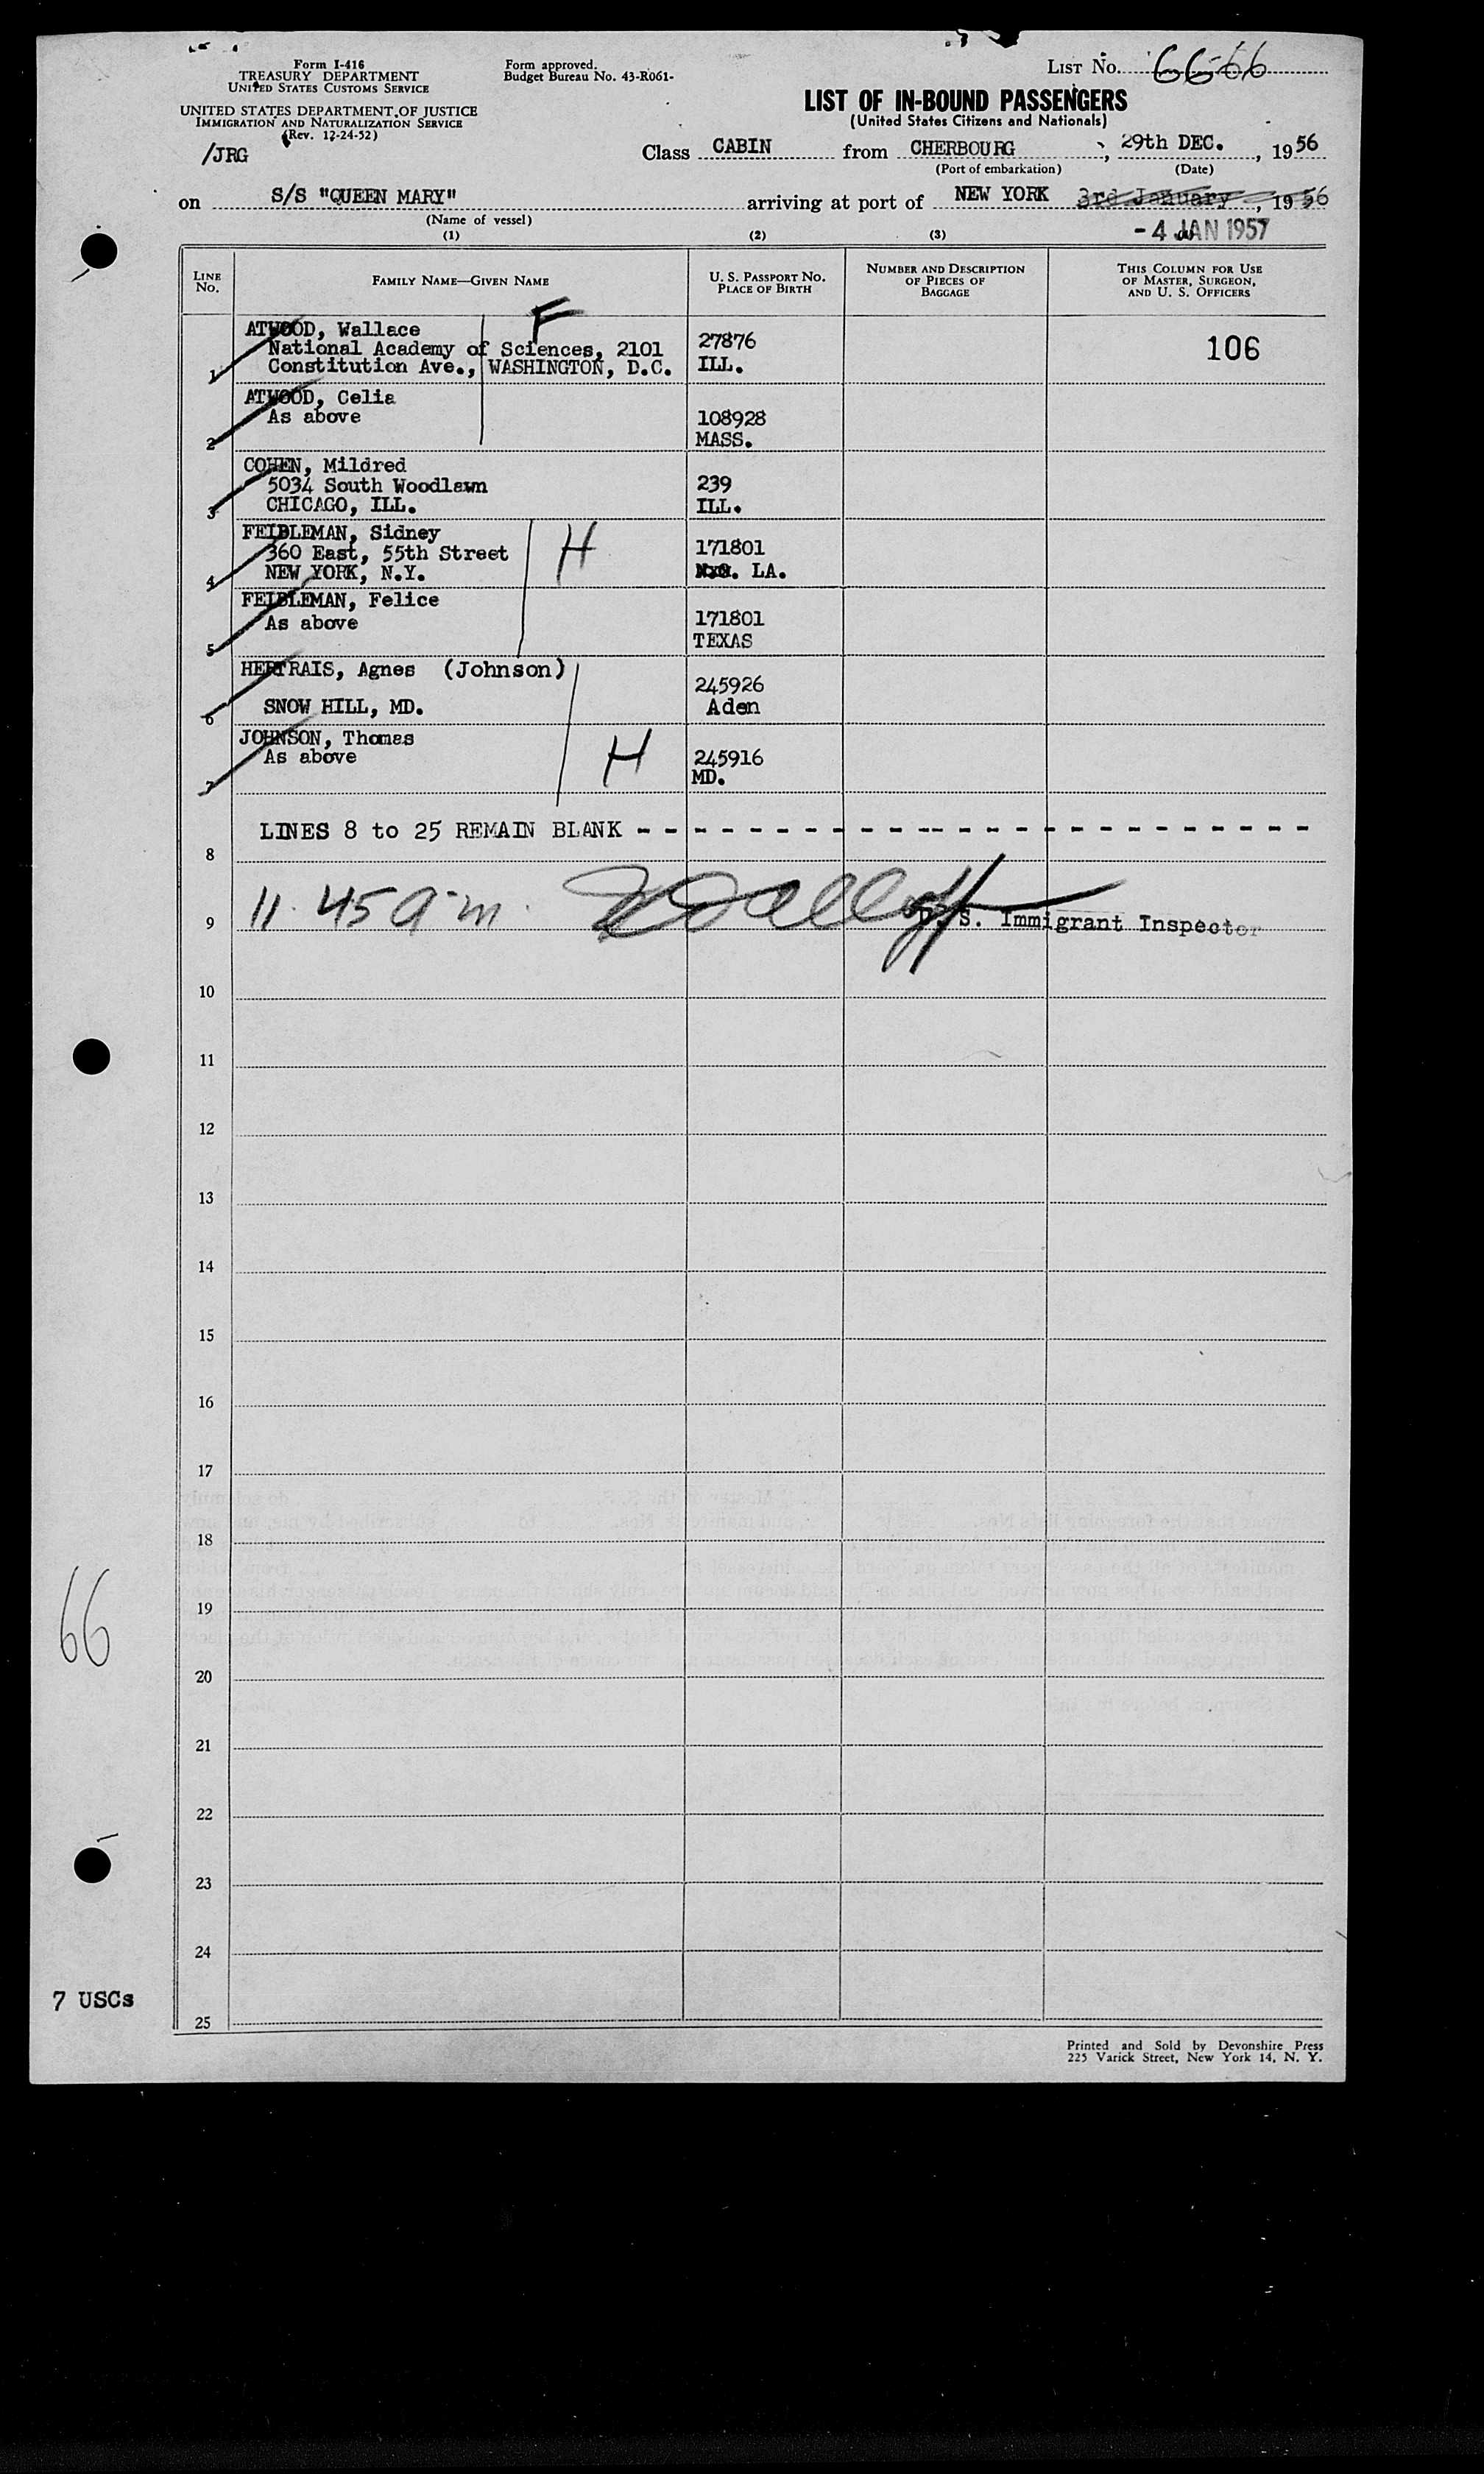 Form I-416
TREASURY DEPARTMENT
UNITED STATES CUSTOMS SERVICE
UNITED STATES DEPARTMENT OF JUSTICE
IMMIGRATION AND NATURALIZATION SERVICE
(Rev. 12-24-52)
/JRG
Form approved.
Budget Bureau No. 43-R061-
LIST NO. 66
LIST OF IN-BOUND PASSENGERS
(United States Citizens and Nationals)
Class CABIN from CHERBOURG, 29th DEC., 1956
(Port of embarkation) (Date)
on S/S "QUEEN MARY" arriving at port of NEW YORK 3rd January, 1956
(Name of vessel)
- 4 JAN 1957
(1) (2) (3)
LINE NO. FAMILY NAME—GIVEN NAME U. S. PASSPORT NO. PLACE OF BIRTH NUMBER AND DESCRIPTION OF PIECES OF BAGGAGE THIS COLUMN FOR USE OF MASTER, SURGEON, AND U. S. OFFICERS
F
ATWOOD, Wallace
National Academy of Sciences, 2101 27876 106
1 Constitution Ave., WASHINGTON, D.C. ILL.
ATWOOD, Celia
As above 108928
2 MASS.
COHEN, Mildred
5034 South Woodlawn 239
3 CHICAGO, ILL. ILL.
FEIBLEMAN, Sidney H
360 East, 55th Street 171801
4 NEW YORK, N.Y. LA.
FEIBLEMAN, Felice
As above 171801
5 TEXAS
HERTRAIS, Agnes (Johnson)
245926
6 SNOW HILL, MD. Aden
JOHNSON, Thomas H
As above 245916
7 MD.
LINES 8 to 25 REMAIN BLANK - - - - - - - - - - - - - - - - - - - - - - - -
8
9 11.45 a.m. U. S. Immigrant Inspector
10
11
12
13
14
15
16
17
18
19
66
20
21
22
23
24
7 USCs
25
Printed and Sold by Devonshire Press
225 Varick Street, New York 14, N. Y.